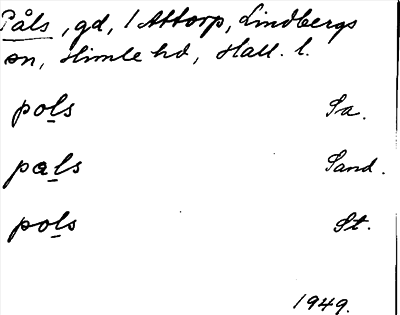 Påls, gd, 1 Attorp, Lindbergs
sn, Himle hd, Hall. l.
pols Sa.
pals Sand.
pols St.
1949.